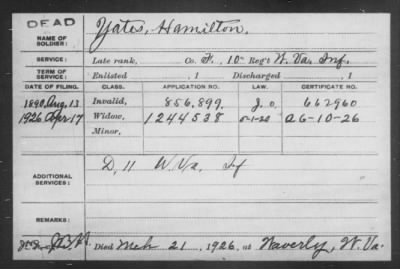 DEAD
NAME OF SOLDIER: Yates, Hamilton.
SERVICE: Late rank, Co. F, 10" Reg't W. Va. Inf.
TERM OF SERVICE: Enlisted , 1 Discharged , 1
DATE OF FILING. CLASS. APPLICATION NO. LAW. CERTIFICATE NO.
1890, Aug, 13 Invalid, 856,899, J. O. 662960
1926 Apr 17 Widow, 1244538 5-1-20 A6-10-26
Minor,
ADDITIONAL SERVICES: D, 11 W. Va. Inf
REMARKS:
Died Mch 21, 1926, at Waverly, W. Va.